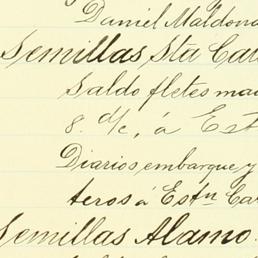 Daniel Maldona
Semillas Sta Cat
Saldo fletes ma
8. d/c, á Est
Diarios, embarque y
teros á Estn Ca
Semillas Alamo.